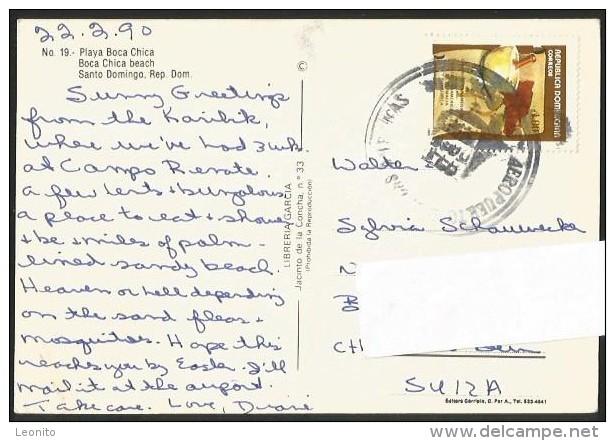 22.2.90
No. 19.- Playa Boca Chica
Boca Chica beach
Santo Domingo, Rep. Dom.
Sunny Greetings
from the Karibik,
where we've had 3 wks.
at Campo Renate.
a few tents & bungalows
a place to eat & shower
& be & miles of palm-
lined sandy beach.
Heaven or hell depending
on the sand fleas &
mosquitos. Hope this
reaches you by Easter. I'll
mail it at the airport.
Take care. Love,
©
LIBRERIA GARCIA
Jacinto de la Concha, n.º 33
(Prohibida la Reproducción)
REPUBLICA DOMINICANA
CORREOS
AEROPUERTO
Walter
Sylvia
CH
SUIZA
Editora Corripio, C. Por A., Tel. 533-4841
Leonito
delcampe.net